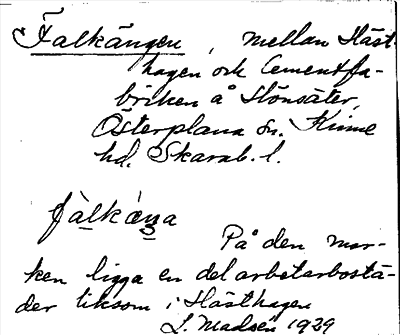 Falkängen, mellan Häst-
hagen och Cementfa-
briken å Hönsäter,
Österplana sn. Kinne
hd. Skarab. l.
På den mar-
ken ligga en del arbetarbostä-
der liksom i Hästhagen
L. Madsén 1929